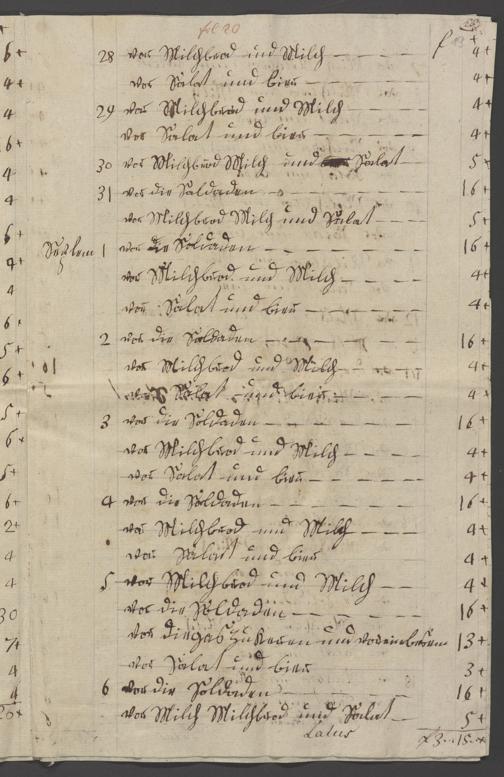 fol 20
28 vor Milchbrod und Milch — 4+
vor Salat und bier — 4+
29 vor Milchbrod und Milch — 4+
vor Salat und bier — 4+
30 vor Milchbrod Milch und Salat — 5+
31 vor die Soldaden — 16+
vor Milchbrod Milch und Salat — 5+
1 vor die Soldaden — 16+
vor Milchbrod und Milch — 4+
vor Salat und bier — 4+
2 vor die Soldaden — 16+
vor Milchbrod und Milch — 4+
vor Salat und bier — 4+
3 vor die Soldaden — 16+
vor Milchbrod und Milch — 4+
vor Salat und bier — 4+
4 vor die Soldaden — 16+
vor Milchbrod und Milch — 4+
vor Salat und bier 4+
5 vor Milchbrod und Milch — 4+
vor die Soldaden — 16+
vor die gas zu keren und vor ein besem 13+
vor Salat und bier 3+
6 vor die Soldaden 16+
vor Milch Milchbrod und Salat — 5+
Latus 3..15